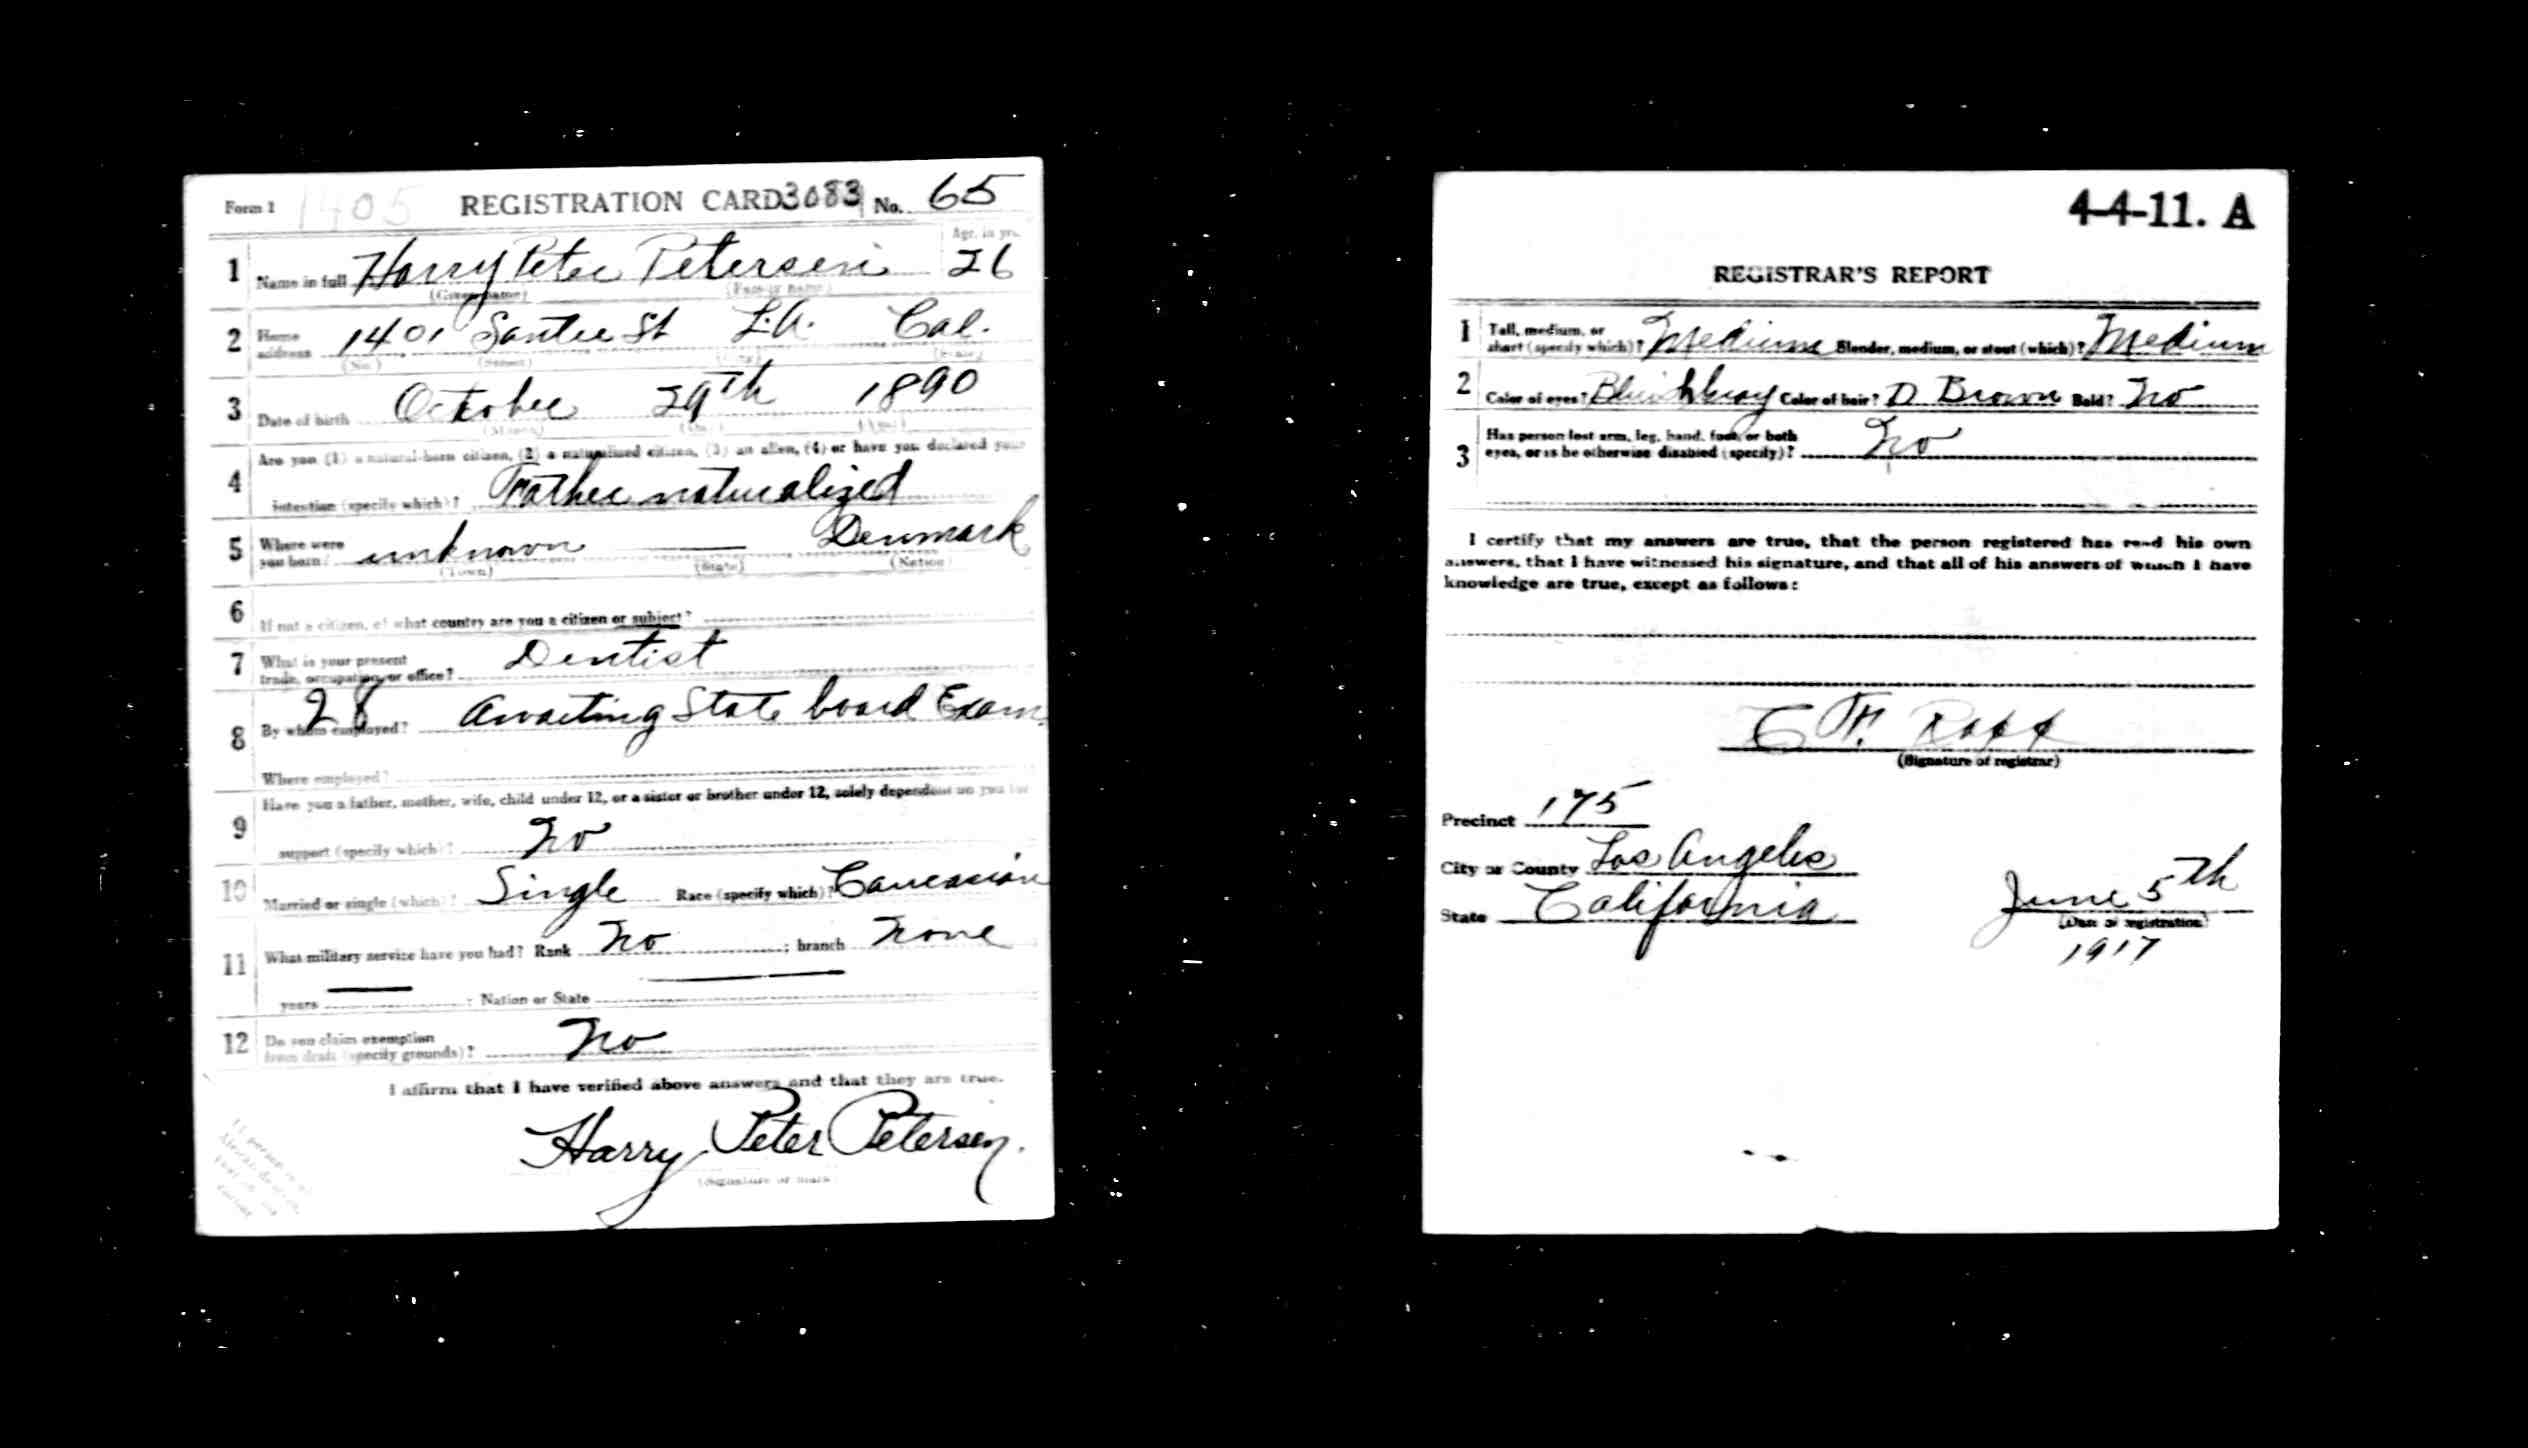 Form 1 1405 REGISTRATION CARD 3083 No. 65
1 Name in full Harry Peter Petersen 26
(Given name) (Family name) Age, in yrs.
2 Home address 1401 Santee St L.A. Cal.
(No.) (Street) (City) (State)
3 Date of birth October 29th 1890
(Month) (Day) (Year)
4 Are you (1) a natural-born citizen, (2) a naturalized citizen, (3) an alien, (4) or have you declared your
intention (specify which)? Father naturalized
5 Where were you born? unknown —— Denmark
(Town) (State) (Nation)
6 If not a citizen, of what country are you a citizen or subject?
7 What is your present trade, occupation, or office? Dentist
28
8 By whom employed? Awaiting State board Exam.
Where employed?
9 Have you a father, mother, wife, child under 12, or a sister or brother under 12, solely dependent on you for
support (specify which)? No
10 Married or single (which)? Single Race (specify which)? Caucasian
11 What military service have you had? Rank No ; branch None
years —— ; Nation or State ——
12 Do you claim exemption from draft (specify grounds)? No
I affirm that I have verified above answers and that they are true.
Harry Peter Petersen.
(Signature or mark)
4-4-11. A
REGISTRAR'S REPORT
1 Tall, medium, or short (specify which)? Medium Slender, medium, or stout (which)? Medium
2 Color of eyes? Bluish Gray Color of hair? D Brown Bald? No
3 Has person lost arm, leg, hand, foot, or both eyes, or is he otherwise disabled (specify)? No
I certify that my answers are true, that the person registered has read his own
answers, that I have witnessed his signature, and that all of his answers of which I have
knowledge are true, except as follows:
Rapp
(Signature of registrar)
Precinct 175
City or County Los Angeles
State California
June 5th
(Date of registration)
1917